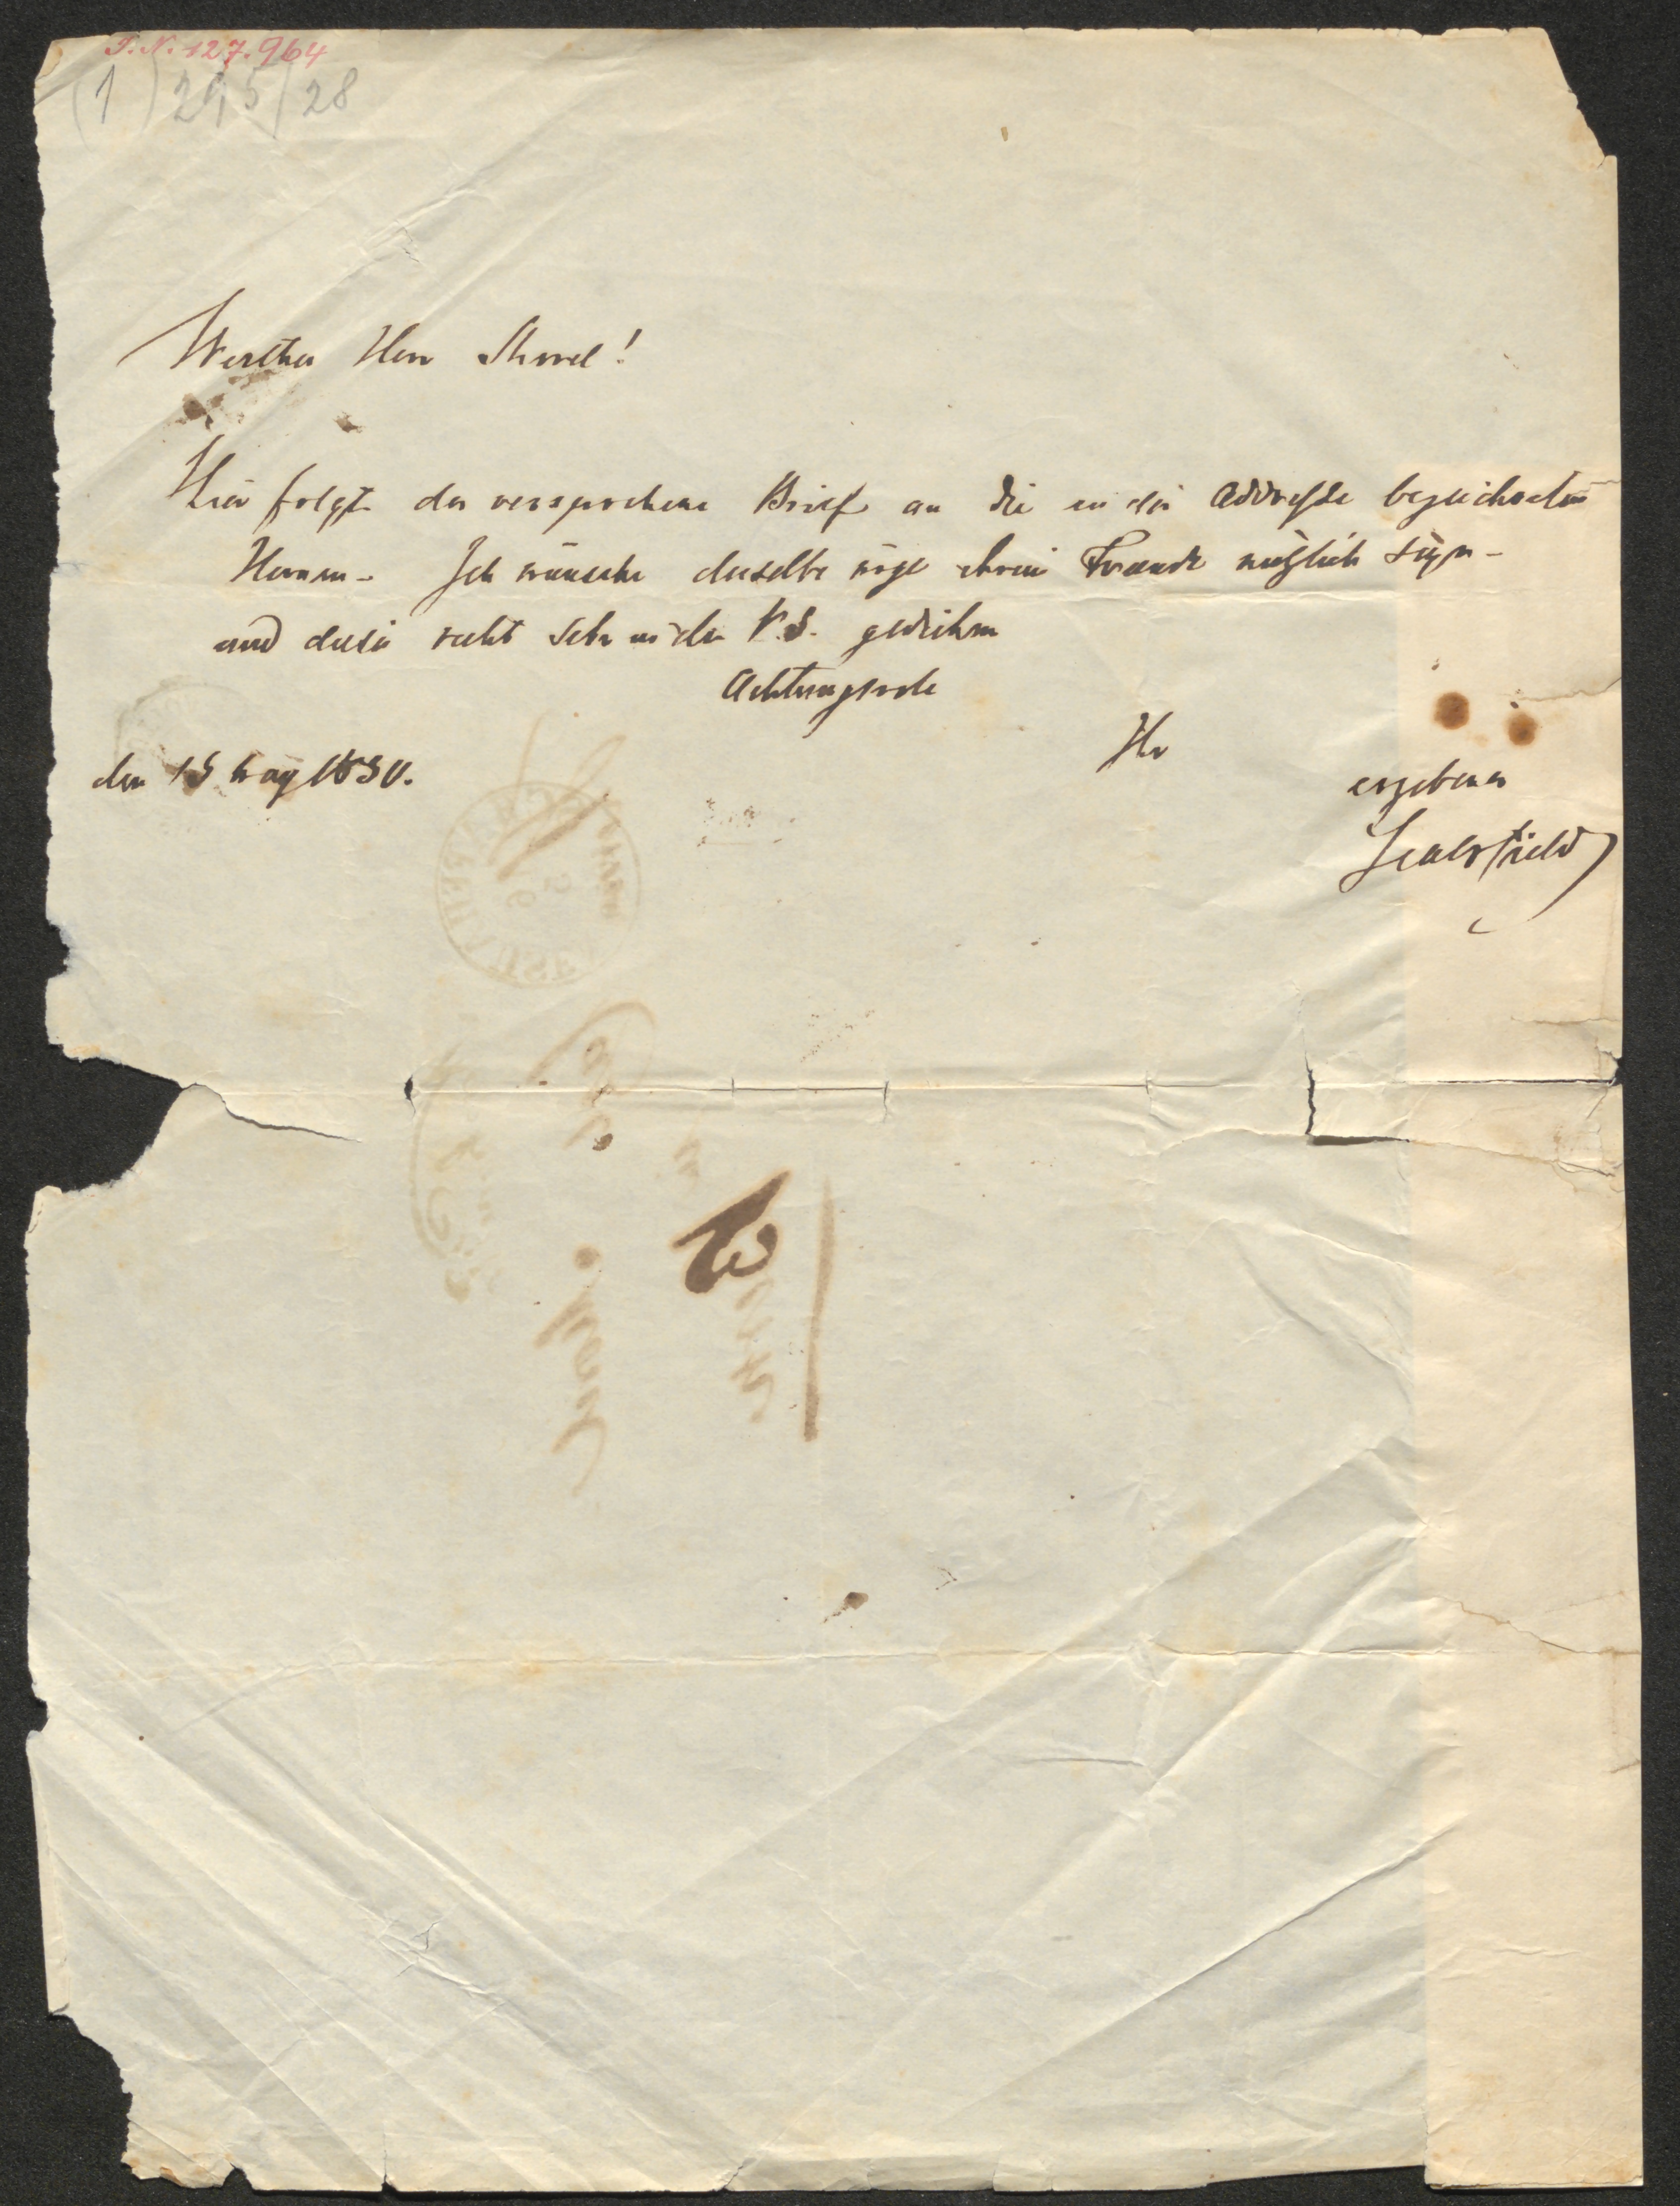 I.N. 127.964
(1) 295/28
Werther Herr
Hier folgt der versprochene Brief an die in der Addresse bezeichneten
Herren - Ich wünsche derselbe möge ihrem Freunde nützlich seyn -
und dieser recht sehr in den V.S. gedeihen
Achtungsvoll
Ihr
den 15 May 1850.
ergebener
Sealsfield